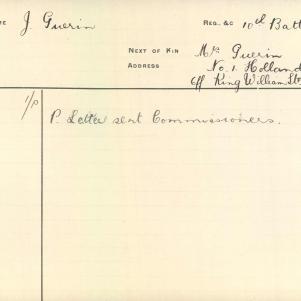 ME J. Guerin REG. &C 10th Batt
NEXT OF KIN Mrs Guerin
ADDRESS No. 1. Holland
off King William St
1/P P. Letter sent Commissioners.